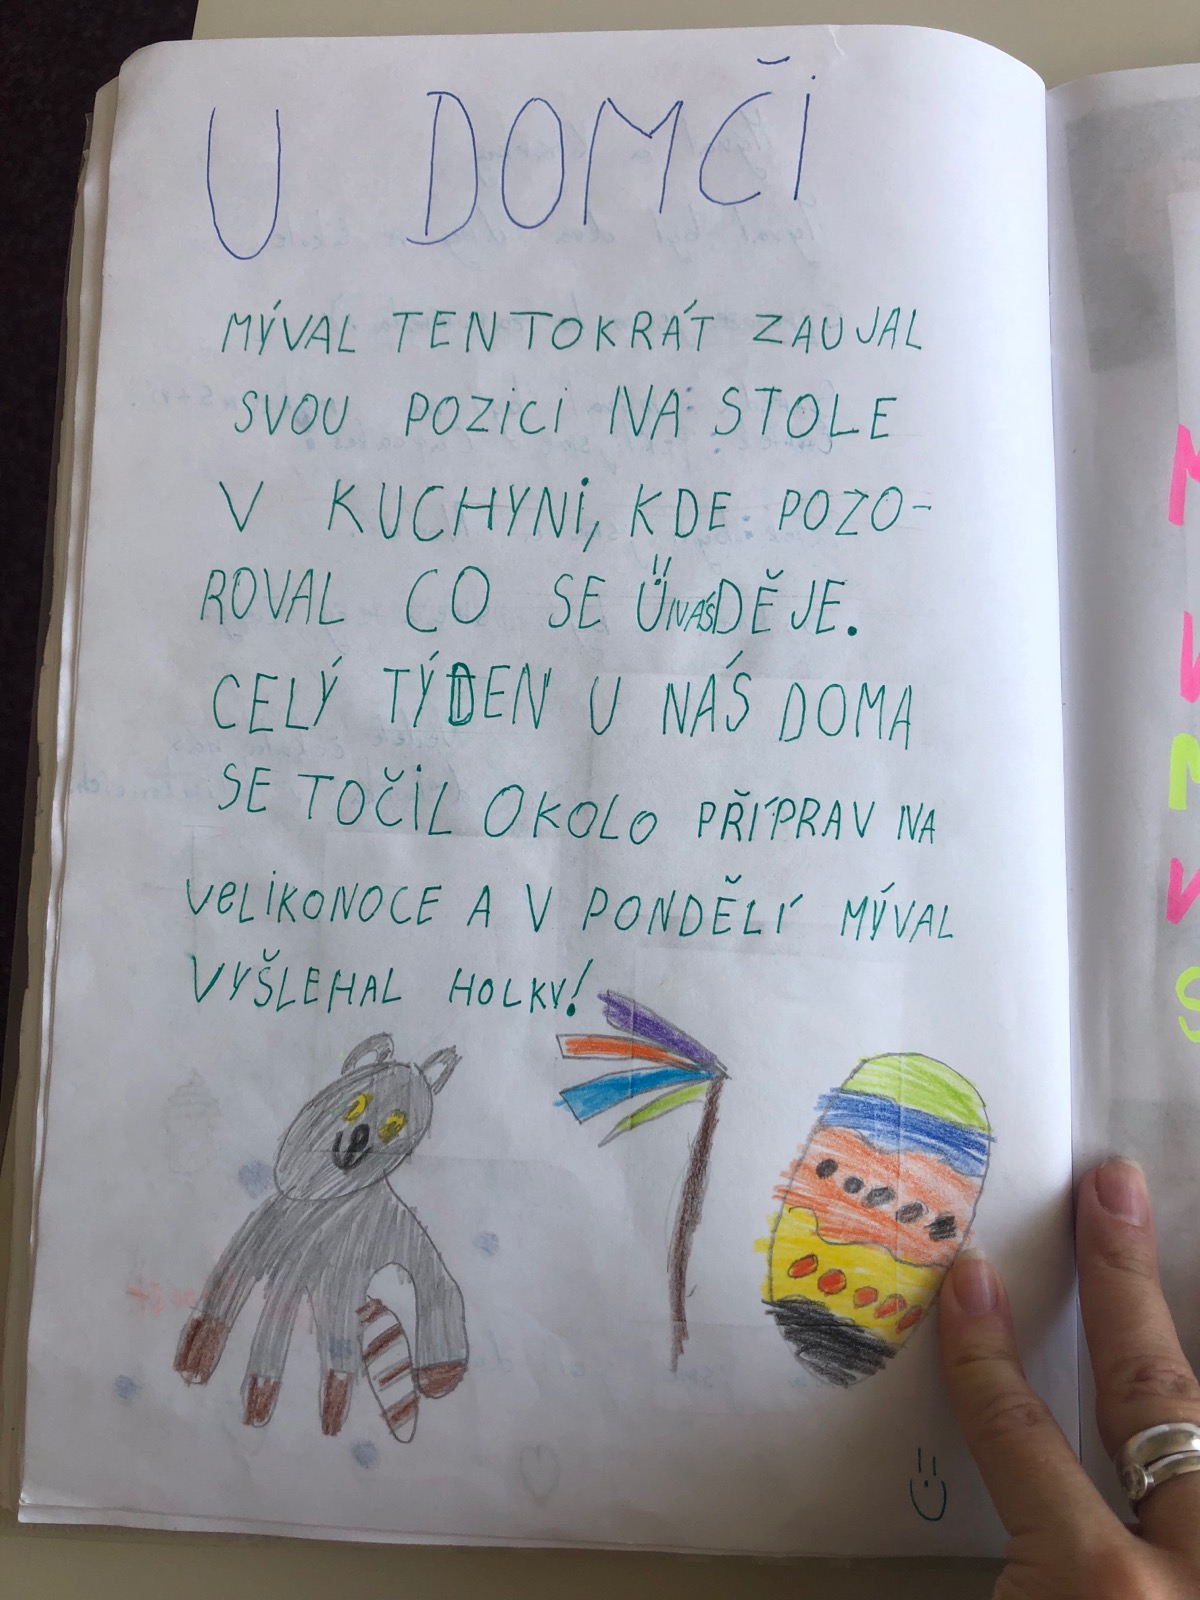 U DOMČI
MÝVAL TENTOKRÁT ZAUJAL
SVOU POZICI NA STOLE
V KUCHYNI, KDE POZO-
ROVAL CO SE U NÁS DĚJE.
CELÝ TÝDEN U NÁS DOMA
SE TOČIL OKOLO PŘÍPRAV NA
VELIKONOCE A V PONDĚLÍ MÝVAL
VYŠLEHAL HOLKY!